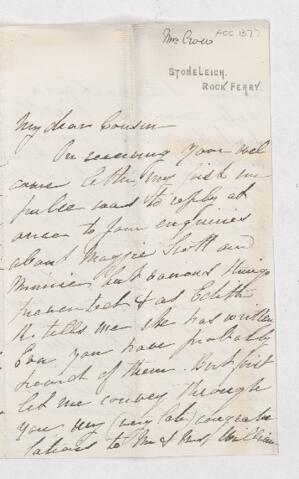 Mrs Crow
ACC 1377
STONELEIGH,
ROCK FERRY.
My dear Cousin
On receiving your wel
come letter, my first im
pulse was to reply at
once to your enquiries
about Maggie Scott and
Minnie but various things
prevented & as Edith
H. tells me she has written
you have probably
heard of them. But first
let me convey through
you my (very late) congratu
lations to Mr & Mrs William